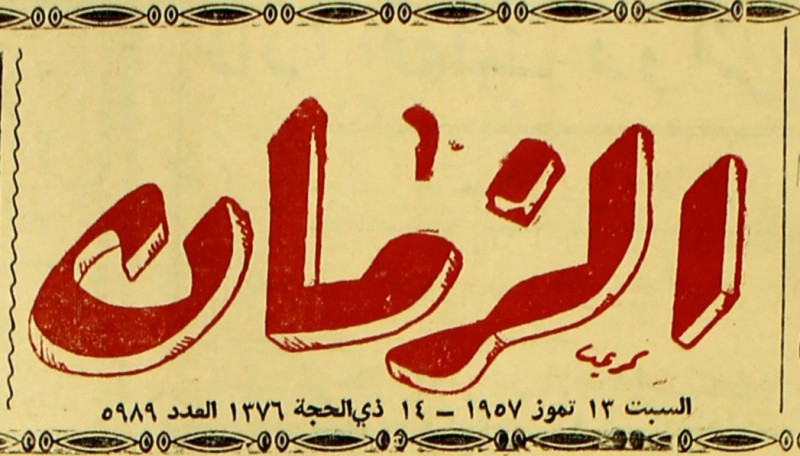 الزمان
السبت ١٣ تموز ١٩٥٧ – ١٤ ذي الحجة ١٣٧٦ العدد ٥٩٨٩